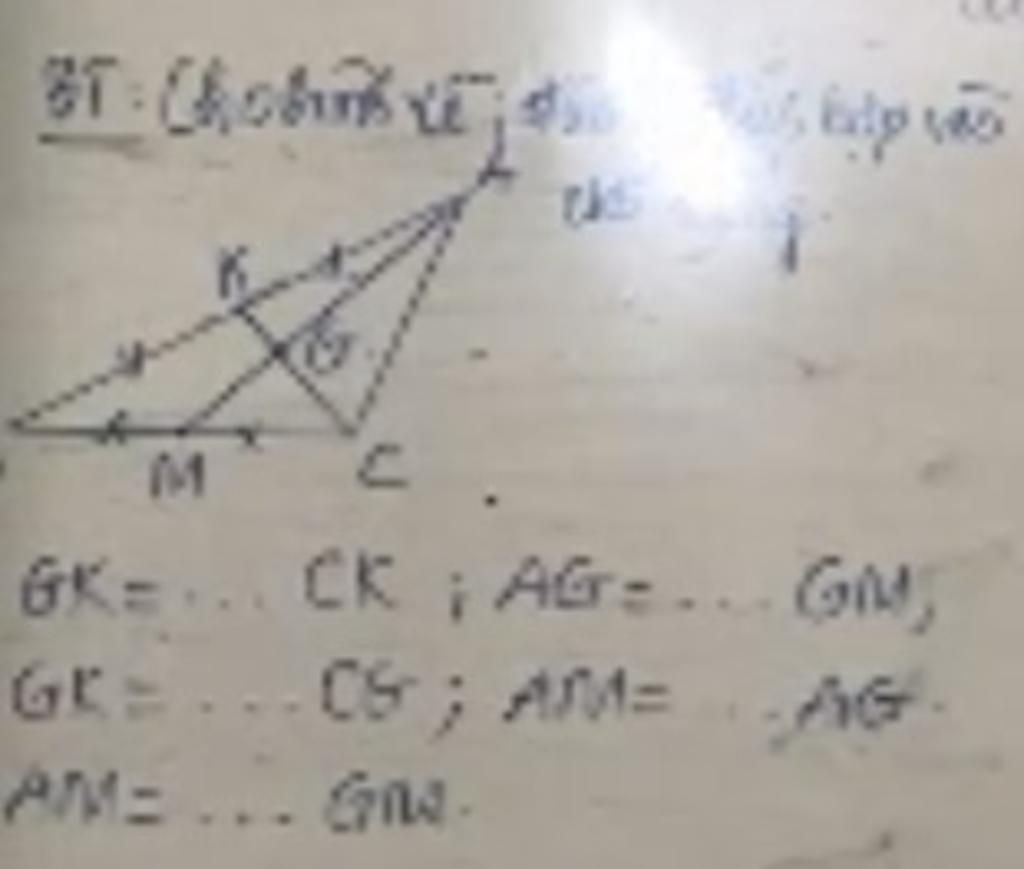 BT: Cho hình vẽ, điền số thích hợp vào
chỗ
A
K
G
M
C
GK = ... CK ; AG = ... GM;
GK = ... CG ; AM = ... AG.
AM = ... GM.